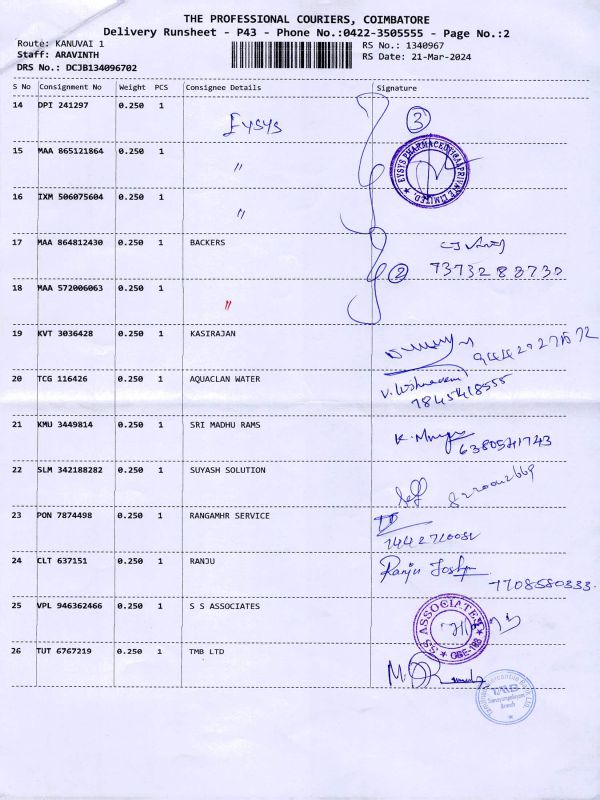 THE PROFESSIONAL COURIERS, COIMBATORE
Delivery Runsheet - P43 - Phone No.:0422-3505555 - Page No.:2
Route: KANUVAI 1
Staff: ARAVINTH
DRS No.: DCJB134096702
RS No.: 1340967
RS Date: 21-Mar-2024
S No Consignment No Weight PCS Consignee Details Signature
14 DPI 241297 0.250 1 EYSYS 3
15 MAA 865121864 0.250 1 "
EYSYS PHARMACEUTICAL PRIVATE LIMITED.
16 IXM 506075604 0.250 1 "
17 MAA 864812430 0.250 1 BACKERS
2 7373288730
18 MAA 572006063 0.250 1 "
19 KVT 3036428 0.250 1 KASIRAJAN
20 TCG 116426 0.250 1 AQUACLAN WATER
7845418555
21 KMU 3449814 0.250 1 SRI MADHU RAMS
6380541743
22 SLM 342188282 0.250 1 SUYASH SOLUTION
23 PON 7874498 0.250 1 RANGAMHR SERVICE
24 CLT 637151 0.250 1 RANJU Ranju
7708580333
25 VPL 946362466 0.250 1 S S ASSOCIATES
SS ASSOCIATES
26 TUT 6767219 0.250 1 TMB LTD
TMB
Branch